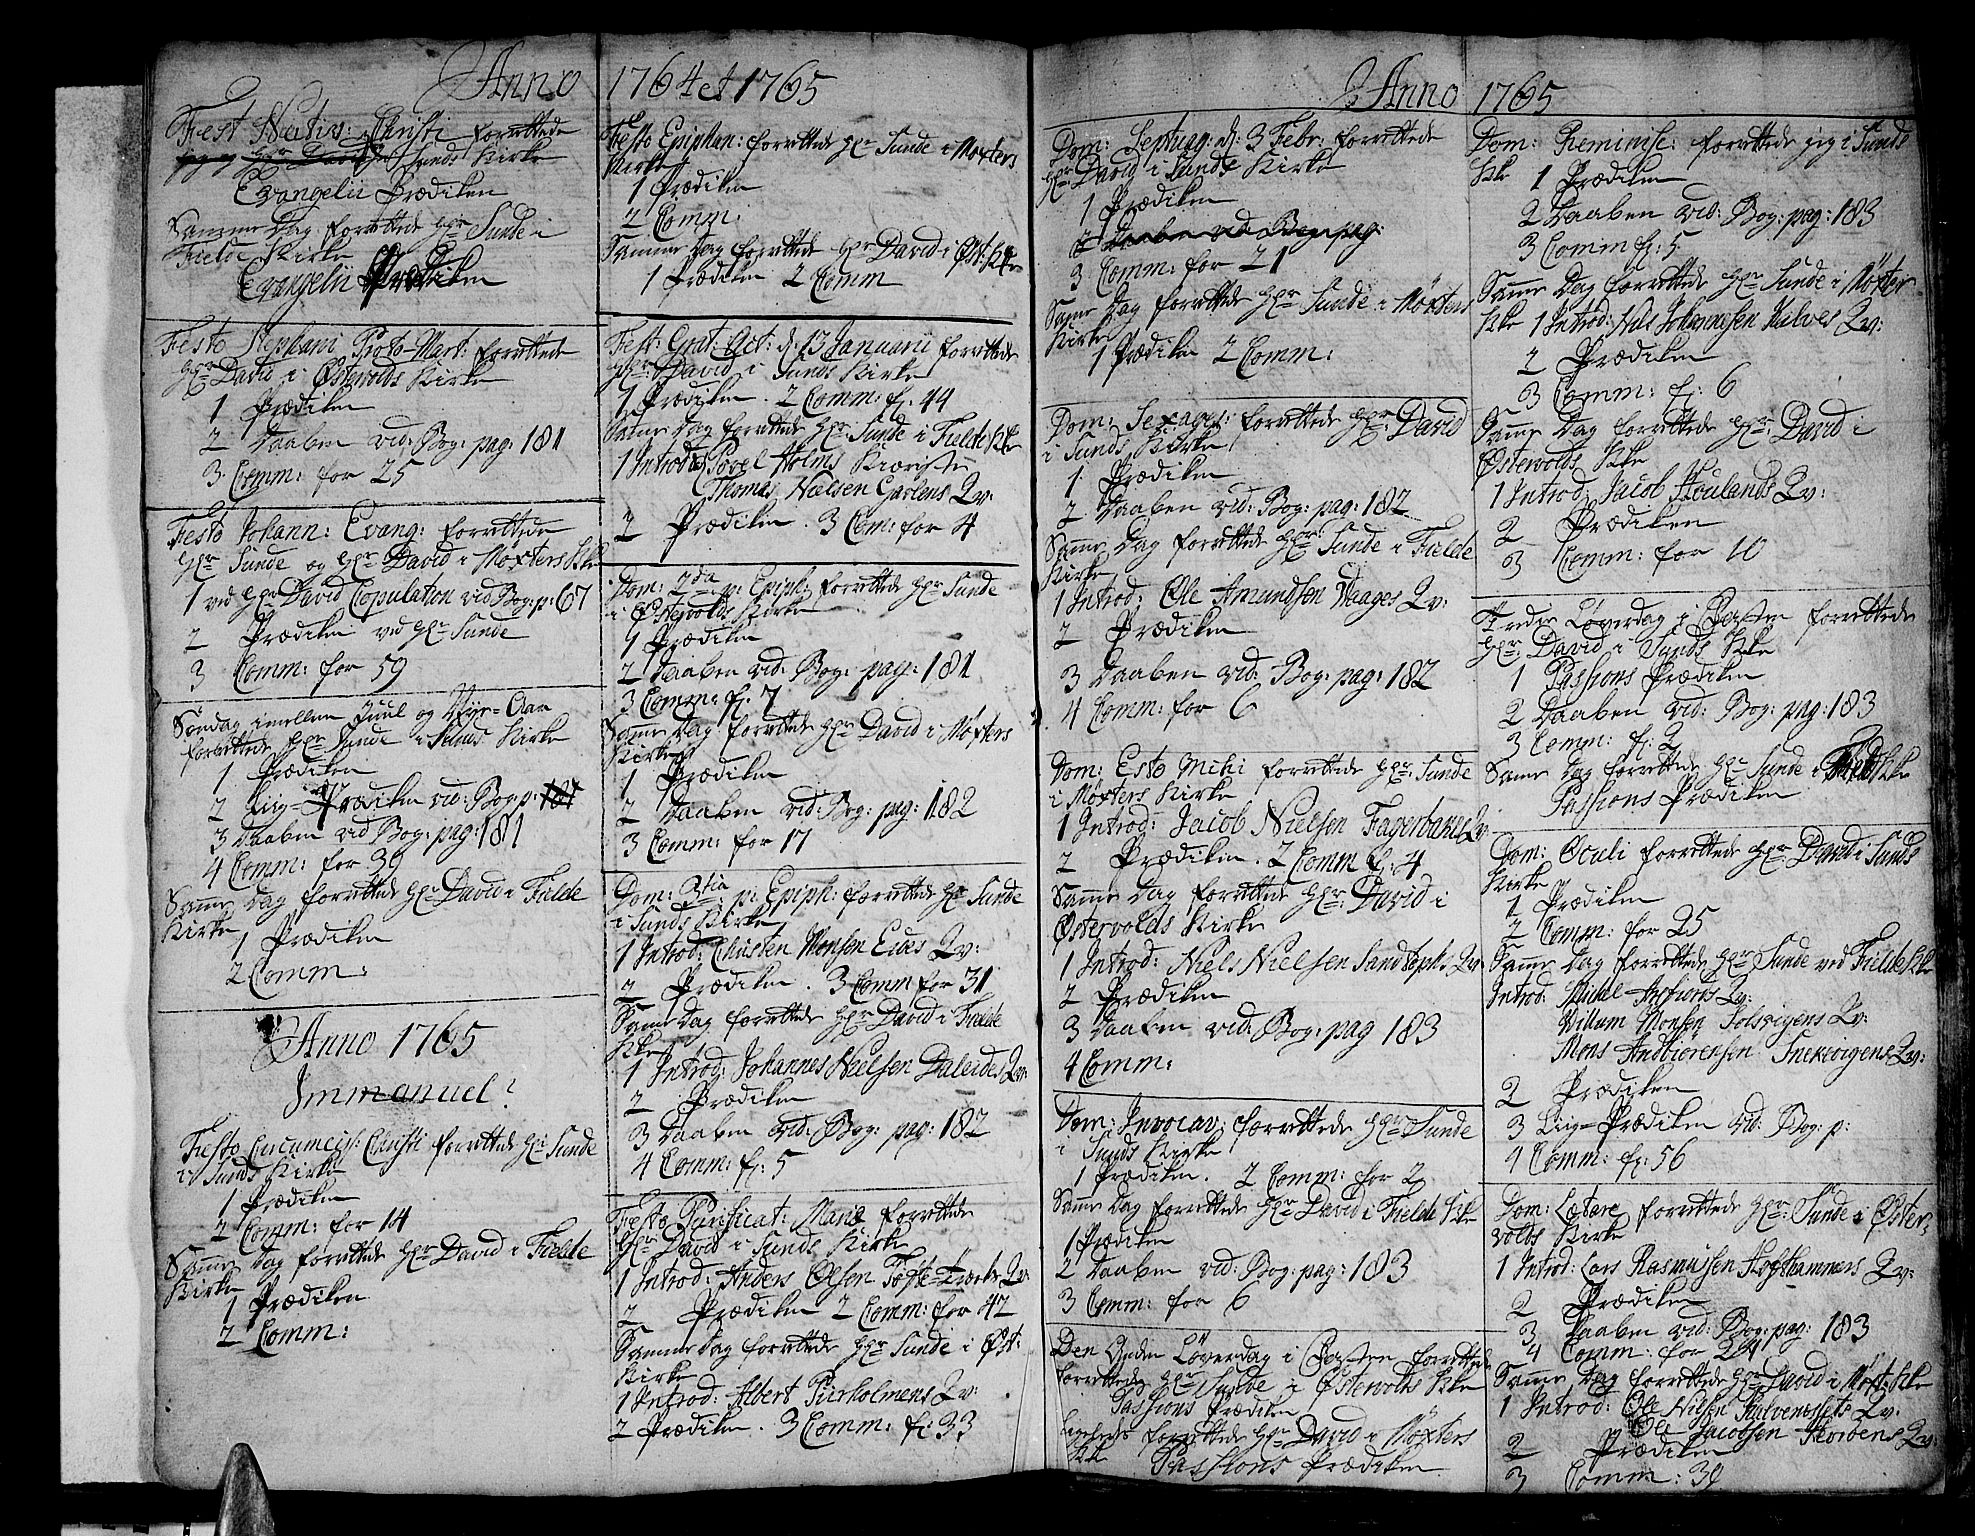 Anno 1764 et 1765
Fest Nativ: Christi forrettede
jeg og Hr David i Sunds Kirke
Evangelii Prædiken
Samme Dag forrettede Hr Sunde i
Fielde Kirke
Evangelii Prædiken
Festo Stephani Proto-Mart: forrettede
Hr David i Østevolds Kirke
1 Prædiken
2 Daaben vid: Bog: pag: 181
3 Comm: for 25
Festo Johann: Evang: forrettede
Hr Sunde og Hr David i Møxters Kke
1 ved Hr David Copulation vid Bog: p: 67
2 Prædiken ved Hr Sunde
3 Comm: for 59
Søndag imellem Juul og Nyt-Aar
forrettede Hr Sunde i Sunds Kirke
1 Prædiken
2 Liig-Prædiken vid: Bog: p: 181
3 Daaben vid Bog: pag: 181
4 Comm: for 39
Samme Dag forrettede Hr David i Fielde
Kirke
1 Prædiken
2 Comm:
Anno 1765
Immanuel!
Festo Circumcis: Christi forrettede Hr Sunde
i Sunds Kirke
1 Prædiken
2 Comm: for 14
Samme Dag forrettede Hr David i Fielde
Kirke
1 Prædiken
2 Comm:
Festo Epiphan: forrettede Hr Sunde i Møxters
Kirke
1 Prædiken
2 Comm:
Samme Dag forrettede Hr David i Øst: Kke
1 Prædiken 2 Comm
Fest: Grat: Act: d: 13 Januarii forrettede
Hr: David i Sunds Kirke
1 Prædiken. 2 Comm: f: 44
Samme Dag forrettede Hr: Sunde i Fielde Kke
1 Introd: Povel Holms Kiæriste
Thomas Nielsen Garlens Qv:
2 Prædiken. 3 Com: for 4
Dom: 2da p: Epiph: forrettede Hr Sunde
i Østevolds Kirke
1 Prædiken
2 Daaben vid: Bog: pag: 181
3 Comm: f: 7
Samme Dag forrettede Hr David i Møxters
Kirke
1 Prædiken
2 Daaben vid: Bog: pag: 182
3 Comm: for 17
Dom: 3tia p: Epiph: forrettede Hr Sunde
i Sunds Kirke
1 Introd: Christen Monsen Eides Qv:
2 Prædiken. 3 Comm for 31
Samme Dag forrettede Hr David i Fielde
Kke
1 Introd: Johannes Nielsen Daleides Qv:
2 Prædiken
3 Daaben vid: Bog: pag: 182
4 Comm: f: 5
Festo Purificat: Mariæ forrettede
Hr David i Sunds Kirke
1 Introd: Anders Olsen Qv:
2 Prædiken 2 Comm: for 42
Samme Dag forrettede Hr Sunde i Øst:
Kirke
1 Introd: Albert Turholmens Qv:
2 Prædiken. 3 Comm: f: 33
Anno 1765
Dom: Septuag: d: 3 Febr: forrettede
Hr David i Sunds Kirke
1 Prædiken
2 Daaben vid Bog: pag:
3 Comm: for 21
Samme Dag forrettede Hr Sunde i Møxters
Kirke
1 Prædiken 2 Comm:
Dom: Sexages: forrettede Hr: David
i Sunds Kirke
1 Prædiken
2 Daaben vid: Bog: pag: 182
Samme Dag forrettede Hr: Sunde i Fielde
Kirke
1 Introd: Ole Amundsen Waages Qv:
2 Prædiken
3 Daaben vid: Bog: pag: 182
4 Comm: for 6
Dom: Esto Mihi forrettede Hr: Sunde
i Møxters Kirke
1 Introd: Jacob Nielsen Fagerbakke Qv
2 Prædiken. 2 Comm f: 4
Samme Dag forrettede Hr: David i
Østervolds Kirke
1 Introd: Niels Nielsen Qv
2 Prædiken
3 Daaben vid: Bog: pag 183
4 Comm:
Dom: Invocav: forrettede Hr Sunde
i Sunds Kirke
1 Prædiken. 2 Comm: for 2
Samme Dag forrettede Hr David i Fielde Kke
1 Prædiken
2 Daaben vid: Bog: pag: 183
3 Comm: for 6
Den Anden Løverdag i Fasten forrettede
forrettede Hr Sunde i Østevolds Kke
Passions Prædiken
forrettede Hr David i Møxters
Kke Passions Prædiken
Dom: Reminisc: forrettede jeg i Sunds
Kke 1 Prædiken
2 Daaben vid: Bog: pag: 183
3 Comm f: 5
Samme Dag forrettede Hr Sunde i Møxter
Kke 1 Introd: Nils Johannesen Kalves Qv:
2 Prædiken
3 Comm: f: 6
Samme Dag forrettede Hr David i
Østervolds Kke
1 Introd Jacob Stoulands Qv:
2 Prædiken
3 Comm: for 10
Tredie Løverdag i Fasten forrettede
Hr: David i Sunds Kke
1 Passions Prædiken
2 Daaben vid: Bog: pag: 183
3 Comm: f: 2
Samme Dag forrettede Hr Sunde i Field Kke
Passions Prædiken
Dom: Oculi forrettede Hr David i Sunds
Kirke
1 Prædiken
2 Comm: for 25
Samme Dag forrettede Hr Sunde ved Fielde Kke
Introd: Qv:
Villum Monsen Solvigens Qv:
Mons Andbiørensen Snekevigens Qv:
2 Prædiken
3 Liig-Prædiken vid: Bog: p:
4 Comm: f: 56
Dom: Lætare forrettede Hr: Sunde i Øster-
volds Kirke
1 Introd: Lars Rasmussen Qv:
2 Prædiken
3 Daaben vid: Bog: pag: 183
4 Comm: for 24
Samme Dag forrettede Hr David i Møxt: Kke
1 Introd: Ole Nilsen Qv:
Ole Jacobsen Qv:
2 Prædiken
3 Comm: 39